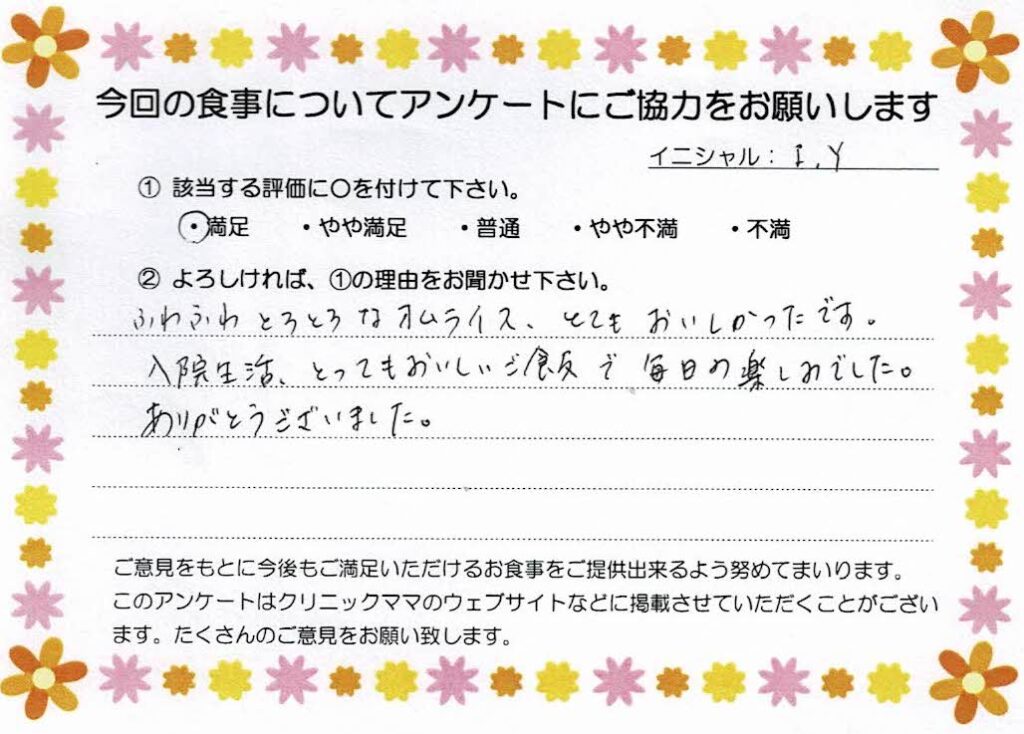 今回の食事についてアンケートにご協力をお願いします
イニシャル： I.Y
① 該当する評価に〇を付けて下さい。
・満足 ・やや満足 ・普通 ・やや不満 ・不満
② よろしければ、①の理由をお聞かせ下さい。
ふわふわとろとろなオムライス、とてもおいしかったです。
入院生活、とってもおいしいご飯で毎日の楽しみでした。
ありがとうございました。
ご意見をもとに今後もご満足いただけるお食事をご提供出来るよう努めてまいります。
このアンケートはクリニックママのウェブサイトなどに掲載させていただくことがござい
ます。たくさんのご意見をお願い致します。